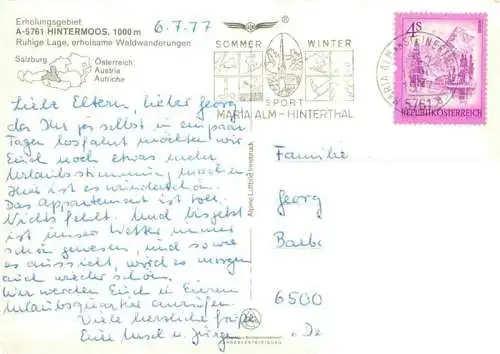 Erholungsgebiet
A-5761 HINTERMOOS, 1000 m
Ruhige Lage, erholsame Waldwanderungen
Salzburg
Österreich
Austria
Autriche
6.7.77
®
SOMMER WINTER
SPORT
MARIA ALM - HINTERTHAL
MARIA ALM
5761
4S
REPUBLIK ÖSTERREICH
Liebe Eltern, lieber Georg
da Ihr ja selbst in ein paar
Tagen losfahrt möchten wir
Euch noch etwas mehr
Urlaubsstimmung machen
Hier ist es wunderschön.
Das Appartement ist toll.
Nichts fehlt. Und bis jetzt
ist unser Wetter immer
schön gewesen, und so wie
es aussieht, wird es morgen
auch wieder schön.
Wir werden Euch in Eurem
Urlaubsquartier anrufen.
Viele herzliche Grüße
Eure Ursel u. Jürgen
Alpine Luftbild Innsbruck
Familie
Georg
6500